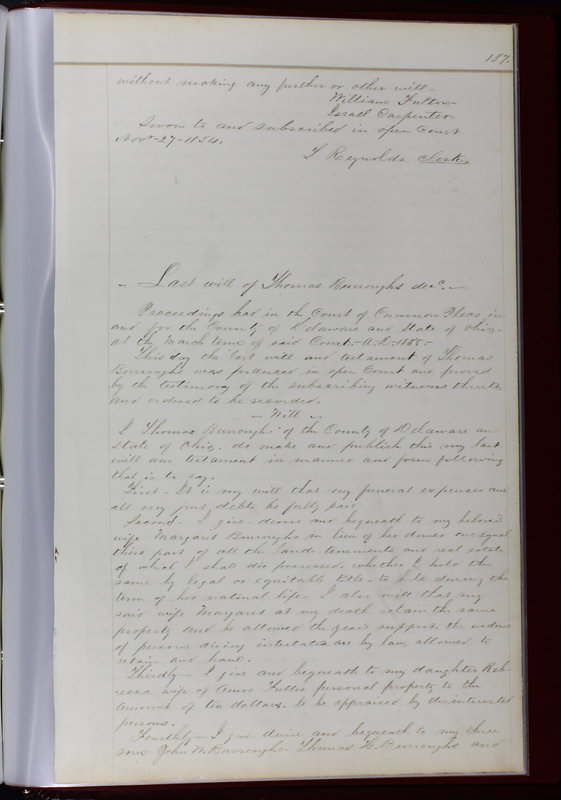 157.
without making any further or other will -
William Fulton -
Israel Carpenter -
Sworn to and subscribed in open Court
Novr 27 - 1854.
T Reynolds Clerk
- Last will of Thomas Burroughs decd. -
Proceedings had in the Court of Common Pleas in
and for the County of Delaware and State of Ohio -
at the March term of said Court - A.D. 1855 -
This day the last will and testament of Thomas
Burroughs was produced in open Court and proved
by the testimony of the subscribing witnesses thereto
and ordered to be recorded.
- Will -
I Thomas Burroughs of the County of Delaware and
State of Ohio. do make and publish this my last
will and testament in manner and form following
that is to say.
First - It is my will that my funeral expenses and
all my just debts be fully paid
Second - I give devise and bequeath to my beloved
wife Margaret Burroughs in lieu of her dower one equal
third part of all the lands tenements and real estate
of which I shall die possessed, whether I hold the
same by legal or equitable title - to hold during the
term of her natural life - I also will that my
said wife Margaret at my death retain the same
property and be allowed the years support the widows
of persons dying intestate are by law allowed to
retain and have.
Thirdly - I give and bequeath to my daughter Reb-
ecca wife of Amos Fuller personal property to the
amount of ten dollars. to be appraised by disinterested
persons.
Fourthly - I give devise and bequeath to my three
sons John W. Burroughs - Thomas H. Burroughs and